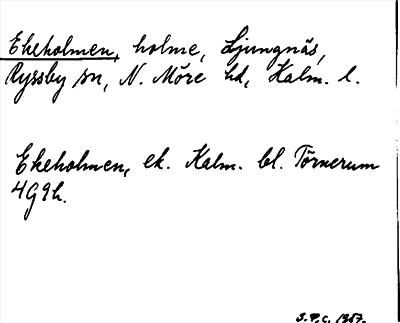 Ekeholmen, holme, Ljungnäs,
Ryssby sn, N. Möre hd, Kalm. l.
Ekeholmen, ek. Kalm. bl. Törnerum
4G9h.
S.P.C. 1957.